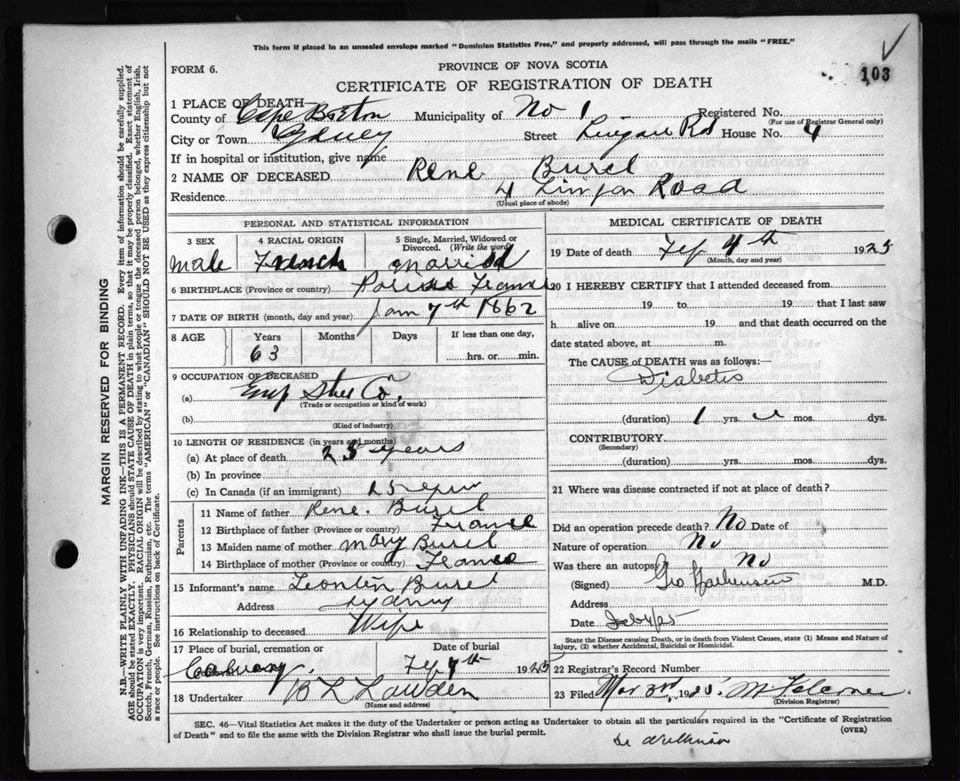 This form if placed in an unsealed envelope marked "Dominion Statistics Free," and properly addressed, will pass through the mails "FREE."
103
PROVINCE OF NOVA SCOTIA
FORM 6.
CERTIFICATE OF REGISTRATION OF DEATH
1 PLACE OF DEATH—
County of Cape Breton Municipality of No 1 Registered No.
(For use of Registrar General only)
City or Town Sydney Street Lingan Rd House No. 4
If in hospital or institution, give name
2 NAME OF DECEASED Rene Burel
Residence 4 Lingan Road
(Usual place of abode)
PERSONAL AND STATISTICAL INFORMATION
3 SEX
male
4 RACIAL ORIGIN
French
5 Single, Married, Widowed or Divorced. (Write the word)
married
6 BIRTHPLACE (Province or country) France
7 DATE OF BIRTH (month, day and year) Jan 7th 1862
8 AGE Years Months Days If less than one day,
63 hrs. or min.
9 OCCUPATION OF DECEASED
(a) Emp Co.
(Trade or occupation or kind of work)
(b)
(Kind of industry)
10 LENGTH OF RESIDENCE (in years and months)
(a) At place of death 25 years
(b) In province
(c) In Canada (if an immigrant)
Parents
11 Name of father Rene Burel
12 Birthplace of father (Province or country) France
13 Maiden name of mother Mary Burel
14 Birthplace of mother (Province or country) France
15 Informant's name Burel
Address Sydney
16 Relationship to deceased Wife
17 Place of burial, cremation or Date of burial
7th 1925
18 Undertaker
(Name and address)
MEDICAL CERTIFICATE OF DEATH
19 Date of death Feb 4th 1925
(Month, day and year)
20 I HEREBY CERTIFY that I attended deceased from
19 to 19 that I last saw
h alive on 19 and that death occurred on the
date stated above, at m.
The CAUSE of DEATH was as follows:—
Diabetes
(duration) 1 yrs. mos. dys.
CONTRIBUTORY
(Secondary)
(duration) yrs. mos. dys.
21 Where was disease contracted if not at place of death?
Did an operation precede death? No Date of
Nature of operation No
Was there an autopsy No
(Signed) Geo M.D.
Address
Date Feb 4/25
State the Disease causing Death, or in death from Violent Causes, state (1) Means and Nature of Injury, (2) whether Accidental, Suicidal or Homicidal.
22 Registrar's Record Number
23 Filed Mar 3rd 1925
(Division Registrar)
SEC. 46—Vital Statistics Act makes it the duty of the Undertaker or person acting as Undertaker to obtain all the particulars required in the "Certificate of Registration
of Death" and to file the same with the Division Registrar who shall issue the burial permit.
(OVER)
MARGIN RESERVED FOR BINDING
N.B.—WRITE PLAINLY WITH UNFADING INK—THIS IS A PERMANENT RECORD. Every item of information should be carefully supplied.
AGE should be stated EXACTLY. PHYSICIANS should STATE CAUSE OF DEATH in plain terms, so that it may be properly classified. Exact statement of
OCCUPATION is very important. RACIAL ORIGIN will be described by stating to what people or tongue the deceased person belonged, whether English, Irish,
Scotch, French, German, Russian, Ruthenian, etc. The terms "AMERICAN" or "CANADIAN" SHOULD NOT BE USED as they express citizenship but not
a race or people. See instructions on back of Certificate.